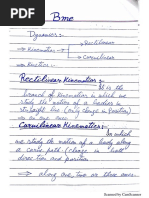 Bme
Dynamics:-
→ Rectilinear
→ Kinematics
→ Curnilinear
→ Kinetics.
Rectilinear Kinematics:-
It is the
branch of Kinematics in which we
study the motion of a bodies in
straight line (only change in Position)
→ in one axis.
Curnilinear Kinematics:-
In which
we study the motion of a body along
a curve path (change in both
direction and position
→ along one, two or three axes.
Scanned by CamScanner